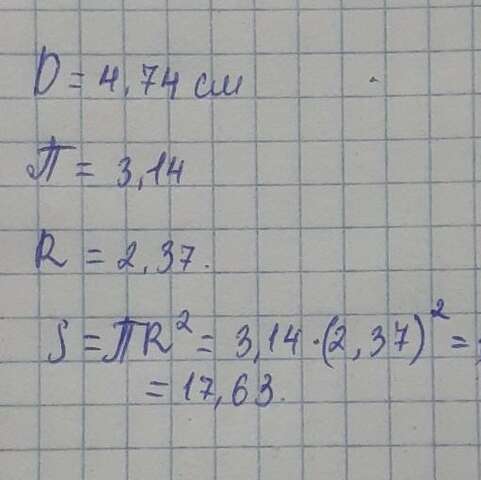 D = 4,74 см
П = 3,14
R = 2,37.
S = ПR² = 3,14·(2,37)² =
= 17,63.